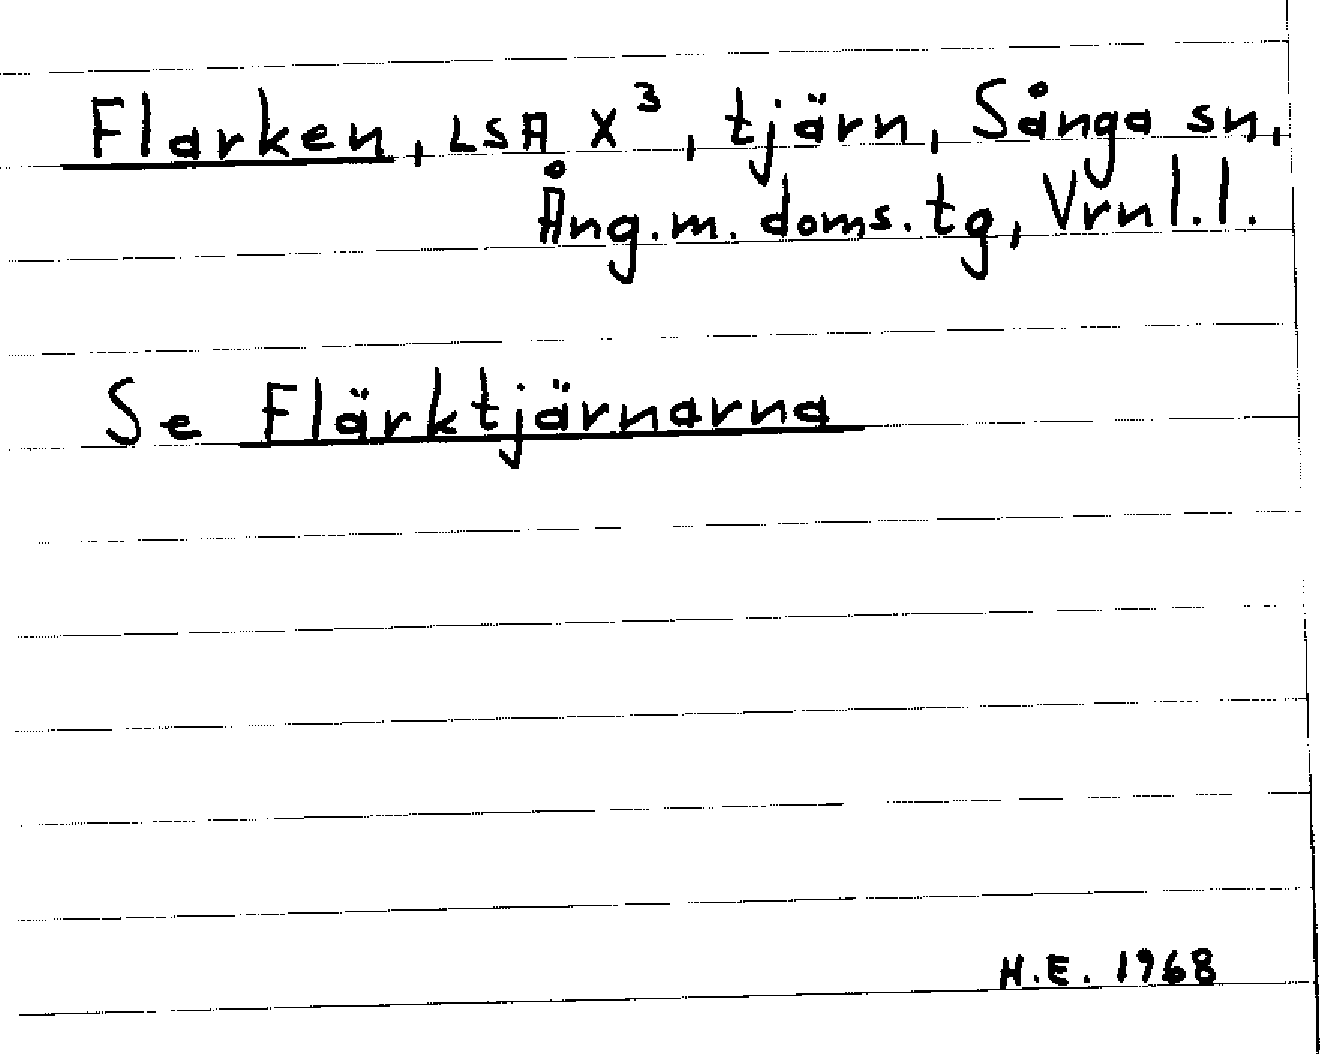 Flarken, LSA X³, tjärn, Sånga sn,
Ång.m. doms.tg, Vrnl.l.
Se Flärktjärnarna
H.E. 1968